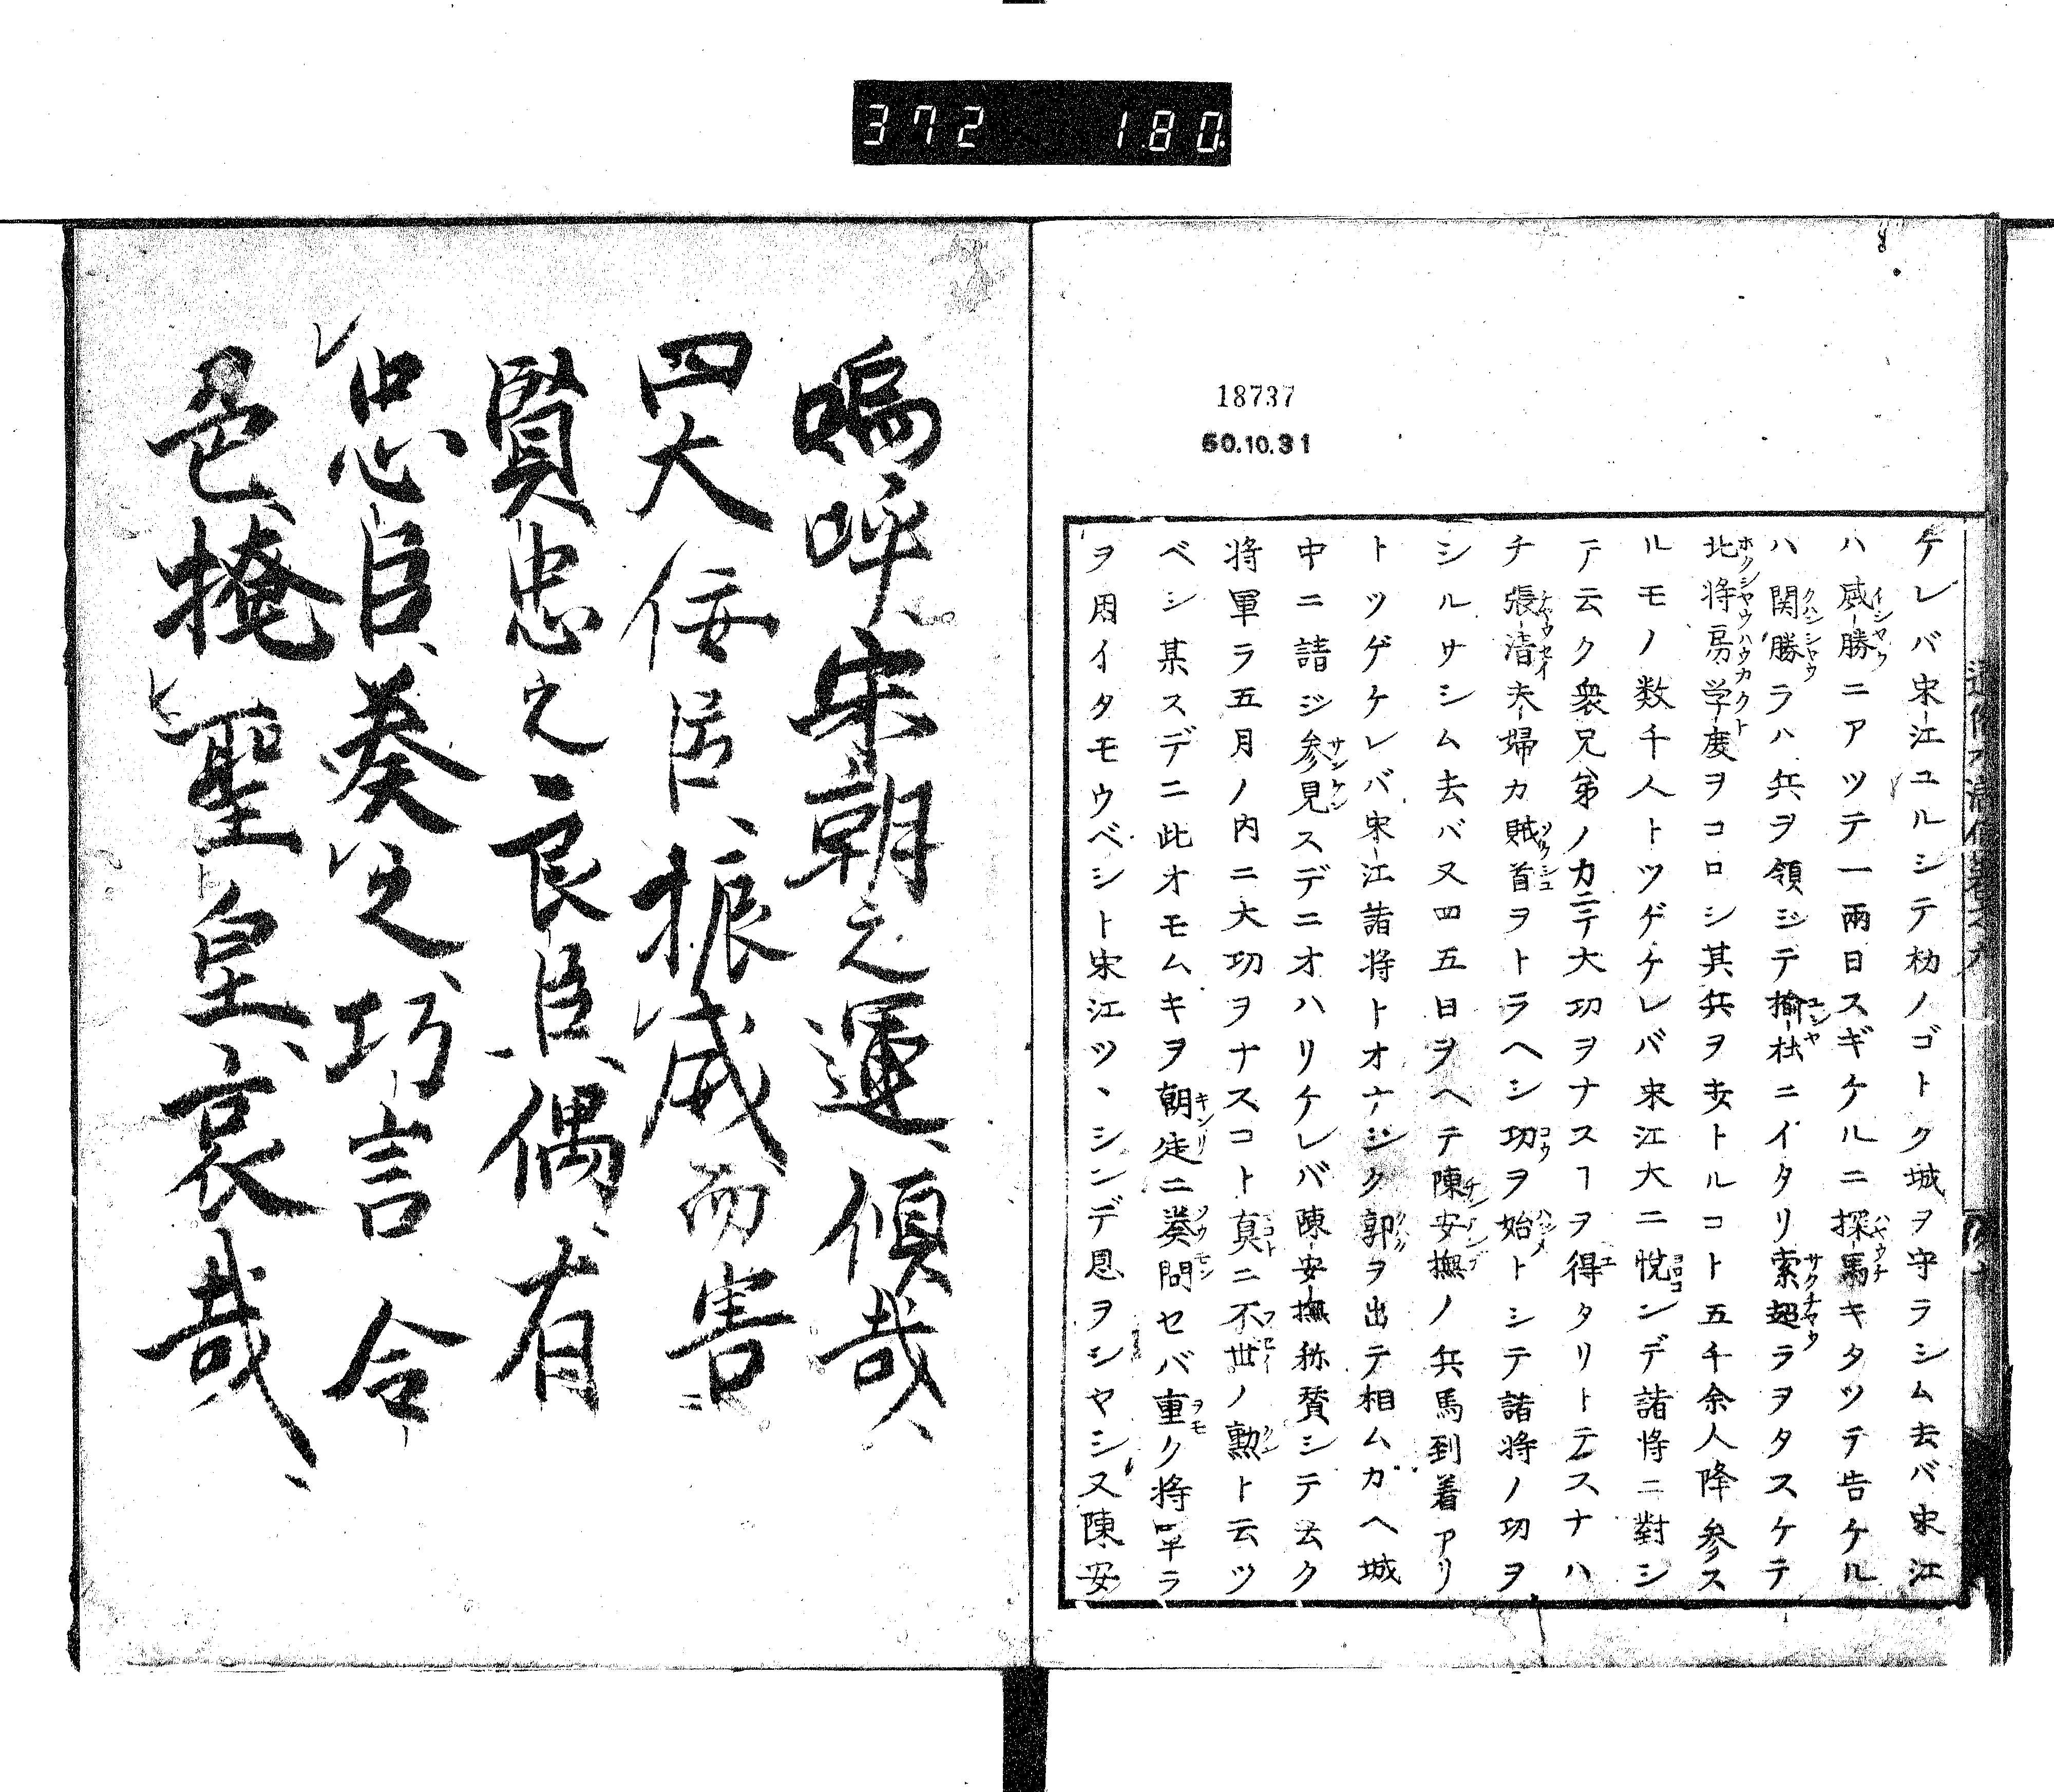 372 180
18737
50.10.31
ケレバ宋江ユルシテ材ノゴトク城ヲ守ラシム去バ宋江
ハ威勝ニアツテ一兩日スギケルニ探馬キタツテ告ケル
ハ関勝ラハ兵ヲ領ジテ揄社ニイタリ索超ラヲタスケテ
北将房学度ヲコロシ其兵ヲ討トルコト五千余人降参ス
ルモノ数千人トツゲケレバ宋江大ニ悦ンデ諸将ニ對シ
テ云ク衆兄弟ノ力ニテ大功ヲナスヿヲ得タリトテスナハ
チ張清夫婦カ賊首ヲトラヘシ功ヲ始トシテ諸将ノ功ヲ
シルサシム去バ又四五日ヲヘテ陳安撫ノ兵馬到着アリ
トツゲケレバ宋江諸将トオナジク郭ヲ出テ相ムカヘ城
中ニ請ジ参見スデニオハリケレバ陳安撫称賛シテ云ク
将軍ラ五月ノ内ニ大功ヲナスコト真ニ不世ノ勲ト云ツ
ベシ某スデニ此オモムキヲ朝廷ニ奏問セバ重ク将軍ラ
ヲ用イタモウベシト宋江ツヽシンデ恩ヲシヤシ又陳安
嗚呼宋朝之運傾哉
四大佞臣振威而害
賢忠之良臣偶有
忠臣奏之巧言令
色掩聖皇哀哉